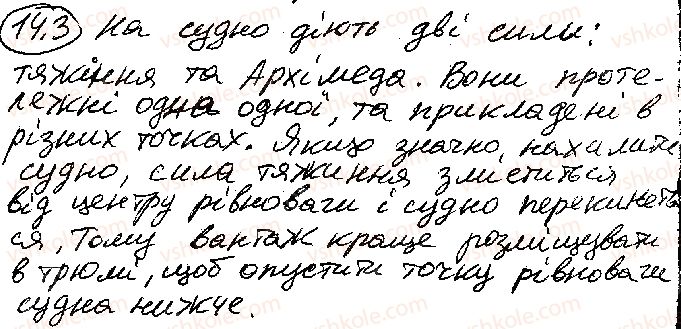 14.3 На судно діють дві сили:
тяжіння та Архімеда. Вони проте-
лежні одна одної, та прикладені в
різних точках. Якщо значно нахилити
судно, сила тяжіння зміститься
від центру рівноваги і судно перекинеть
ся, Тому вантаж краще розміщувати
в трюмі, щоб опустити точку рівноваги
судна нижче.